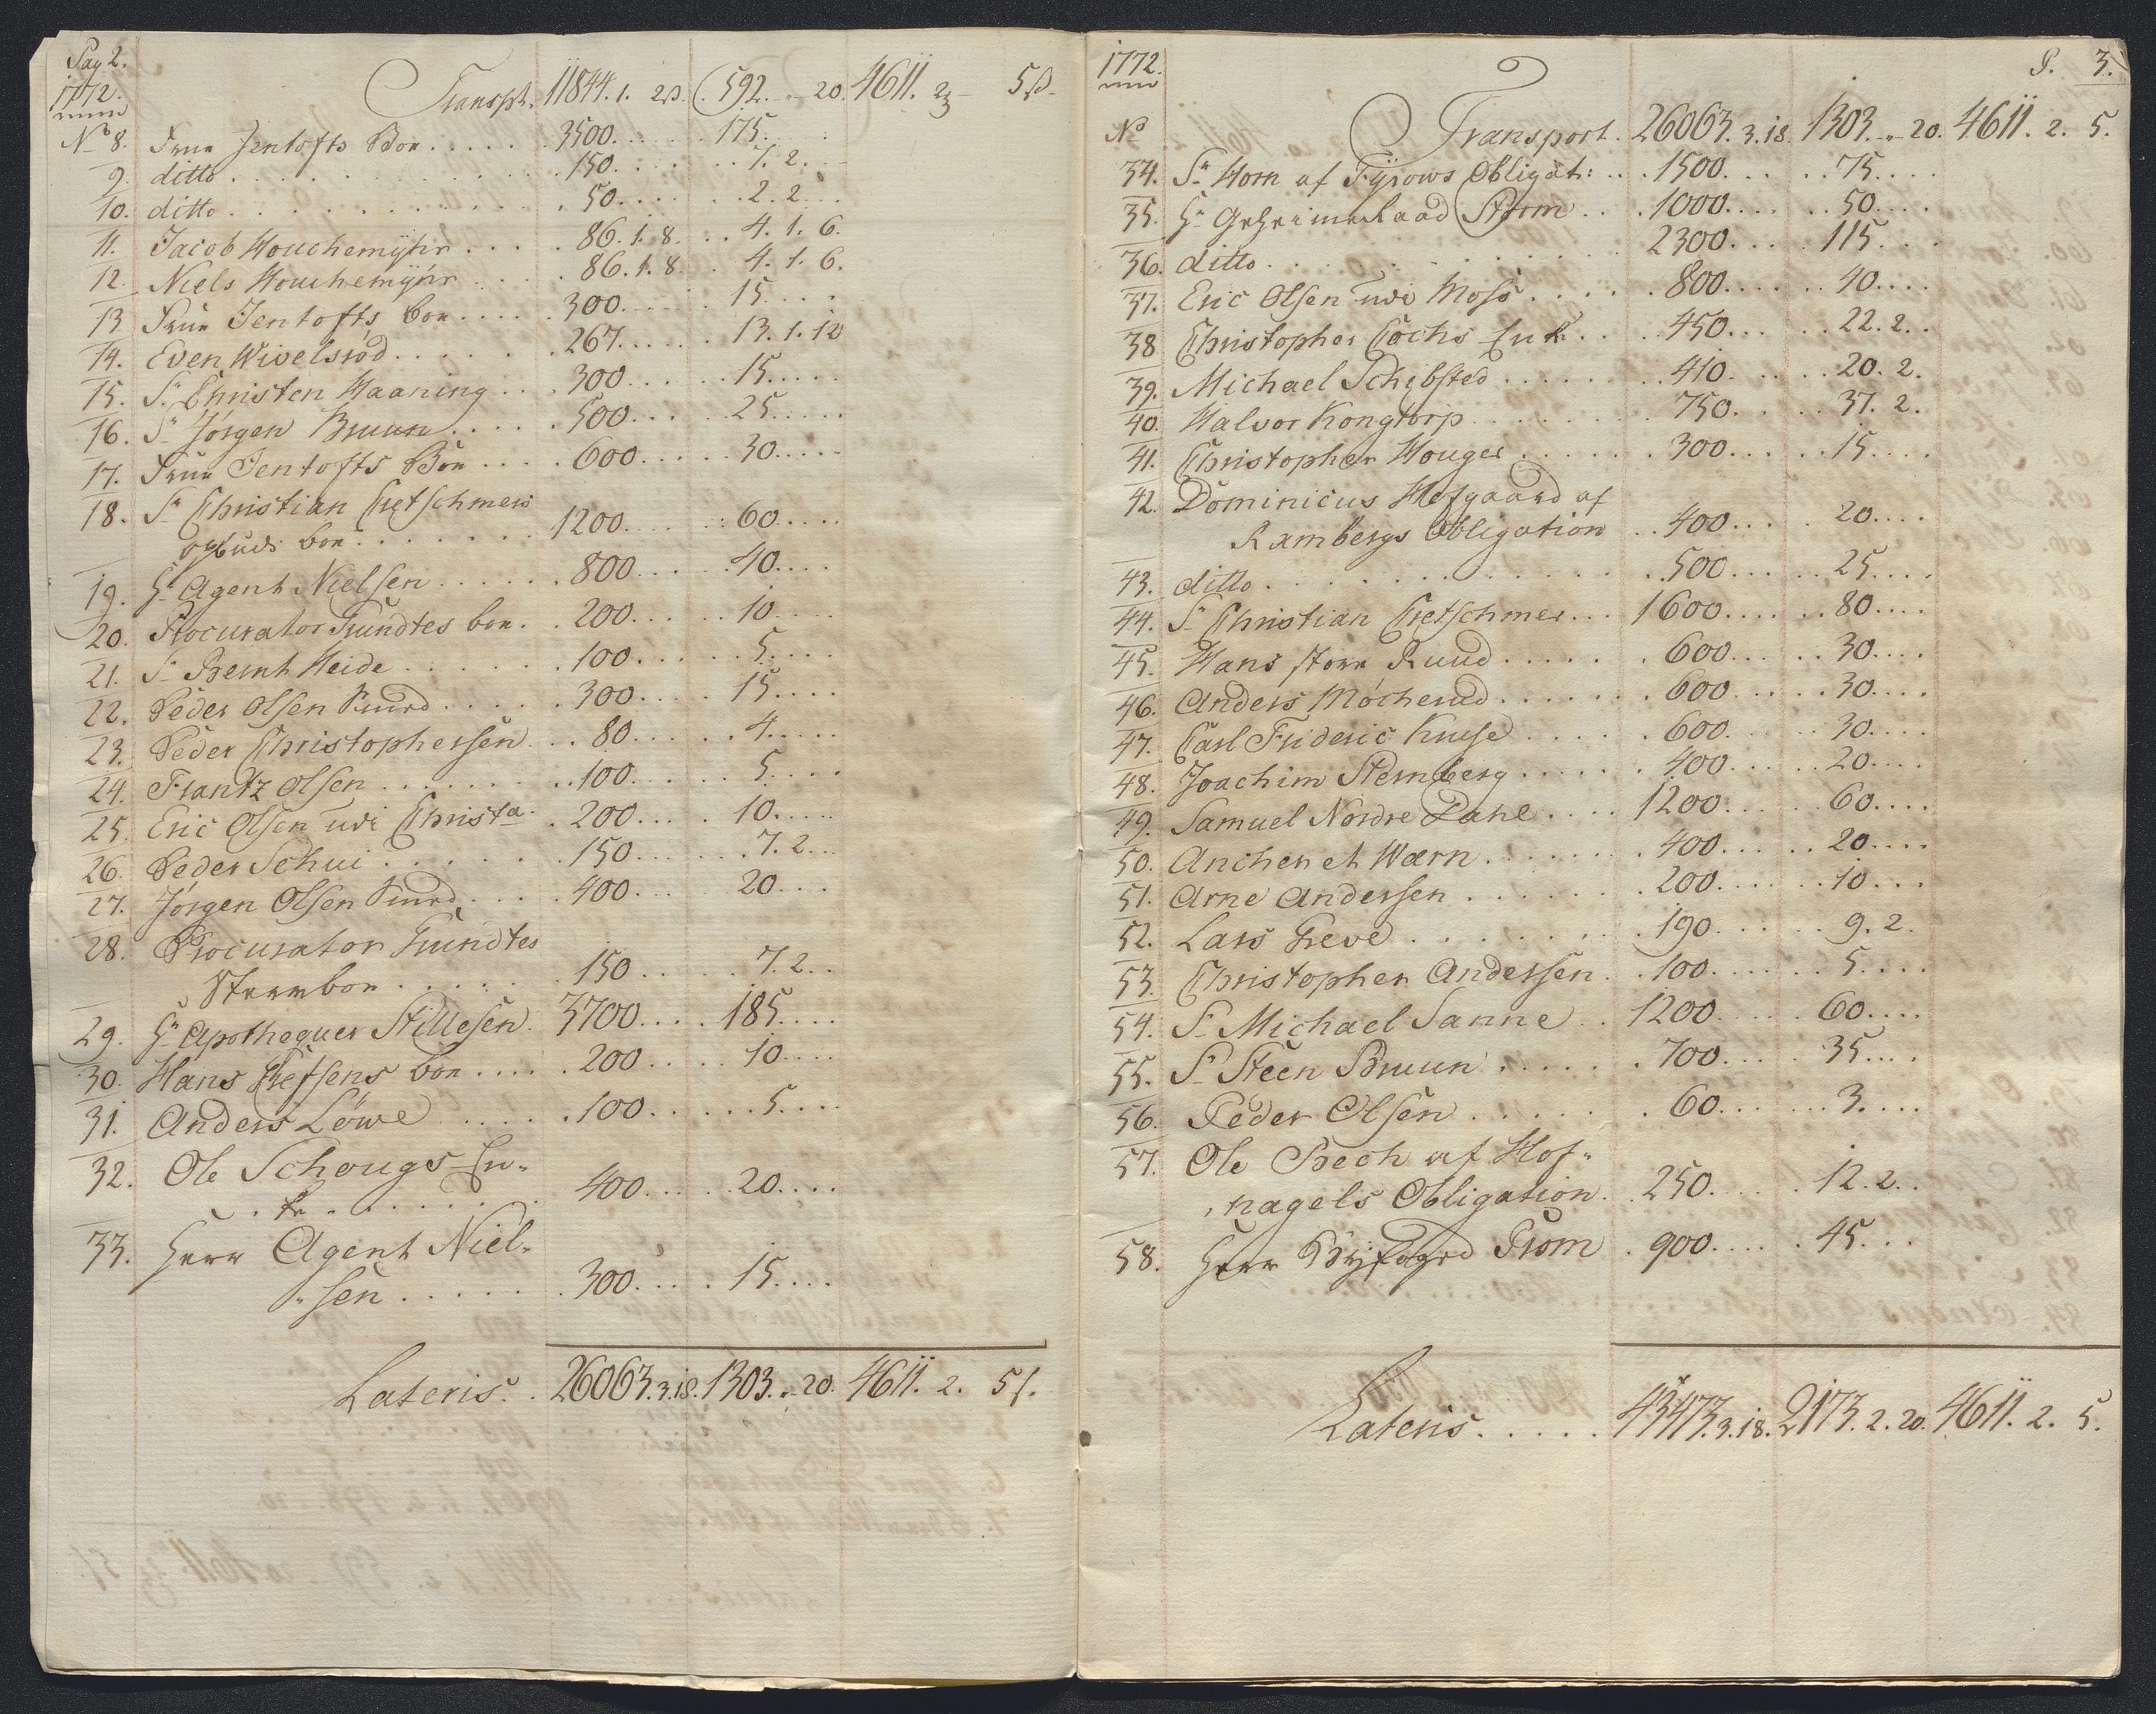 Pag 2.
1772.
Transpt. 11844. 1. 2ß. 592. - 20. 4611. 2 5ß.
No 8. Frue Jentofts Boe ..... 3500. .... 175.
9. ditto ..... 150. .... 7. 2.
10. ditto ..... 50. .... 2. 2.
11. Jacob Houchemyhr .... 86. 1. 8. .. 4. 1. 6.
12. Niels Houchemyhr .... 86. 1. 8. .. 4. 1. 6.
13 Frue Jentofts boe .... 300. .... 15.
14. Even Wivelsröd ..... 267. .... 13. 1. 12
15. Sr Christen Haaning ... 300. .... 15.
16. Sr Jörgen Bruun ..... 500. .... 25.
17. Frue Jentofts Boe .... 600. .... 30.
18. Sr Christian Cretschmers
opbuds boe ....... 1200. .... 60.
19. Hr Agent Nielsen ...... 800. .... 40.
20. Procurator Trundtes boe. . 200. .... 10.
21. Sr Bernt Heide ...... 100. .... 5.
22. Peder Olsen ..... 300. .... 15.
23. Peder Christophersen ... 80. .... 4.
24. Frantz Olsen ....... 100. .... 5.
25. Eric Olsen udi Christa. . 200. .... 10.
26. Peder Schui ...... 150. .... 7. 2.
27. Jörgen Olsen .... 400. .... 20.
28. Procurator Trundtes
Sterwboe ...... 150. .... 7. 2.
29. Hr Apothequer Stillesen. 3700. .... 185.
30. Hans boe .... 200. .... 10.
31. Anders Löwe ..... 100. .... 5.
32. Ole Schougs En-
ke ....... 400. .... 20.
33. Herr Agent Niel-
sen ...... 300. .... 15.
Lateris. . 26063. 3. 18. 1303. - 20. 4611. 2. 5ß.
1772. P. 3.
No Transport. 26063. 3. 18. 1303. - 20. 4611. 2. 5.
34. Sr Horn af Fyrows Obligat: .. 1500. .... 75.
35. Hr Geheimeraad Storm ... 1000. .... 50.
36. ditto ......... 2300. .... 115.
37. Eric Olsen udi Moss ..... 800. .... 40.
38 Christopher Cochs Enke ... 450. .... 22. 2.
39. Michael Schibsted ...... 410. .... 20. 2.
40. Halvor Kongtorp ...... 750. .... 37. 2.
41. Christopher Houger ..... 300. .... 15.
42. Dominicus Hofgaard af
Rambergs Obligation .. 400. .... 20.
43. ditto ......... 500. .... 25.
44. Sr Christian Cretschmer ... 1600. .... 80.
45. Hans store Ruud ..... 600. .... 30.
46. Anders Möcherud ...... 600. .... 30.
47. Carl Frideric Kruse ..... 600. .... 30.
48. Joachim Sternberg ..... 400. .... 20.
49. Samuel Nordre Dahl .... 1200. .... 60.
50. Ancher et Wærn ...... 400. .... 20.
51. Arne Andersen ...... 200. .... 10.
52. Lars Greve ....... 190. .... 9. 2.
53. Christopher Andersen .. 100. .... 5.
54. Sr Michael Sanne .. 1200. .... 60.
55. Sr Steen Bruun ..... 700. .... 35.
56. Peder Olsen ...... 60. .... 3.
57. Ole Bech af Hof-
nagels Obligation. . 250. .... 12. 2.
58. Herr Byefoged From . 900. .... 45.
Lateris ..... 43473. 3. 18. 2173. 2. 20. 4611. 2. 5.